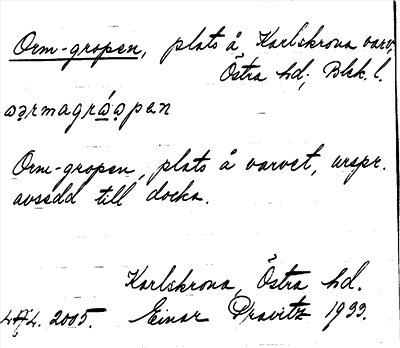 Orm-gropen, plats å Karlskrona varv,
Östra hd; Blek. l.
Orm-gropen, plats å varvet, urspr.
avsedd till docka.
Karlskrona, Östra hd.
2005. Einar Pravitz 1933.